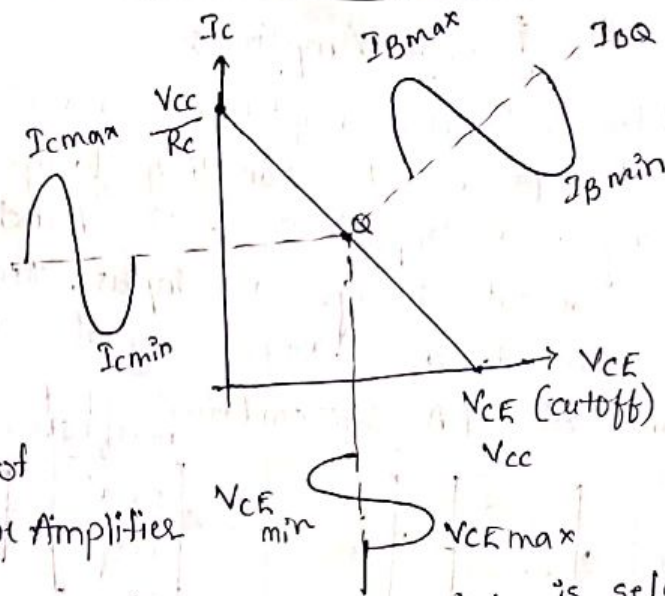 Ic
IBmax
IBQ
Vcc
Rc
Icmax
IBmin
Q
Icmin
VCE
VCE (cutoff)
Vcc
of
Amplifier
VCE
min
VCEmax
is